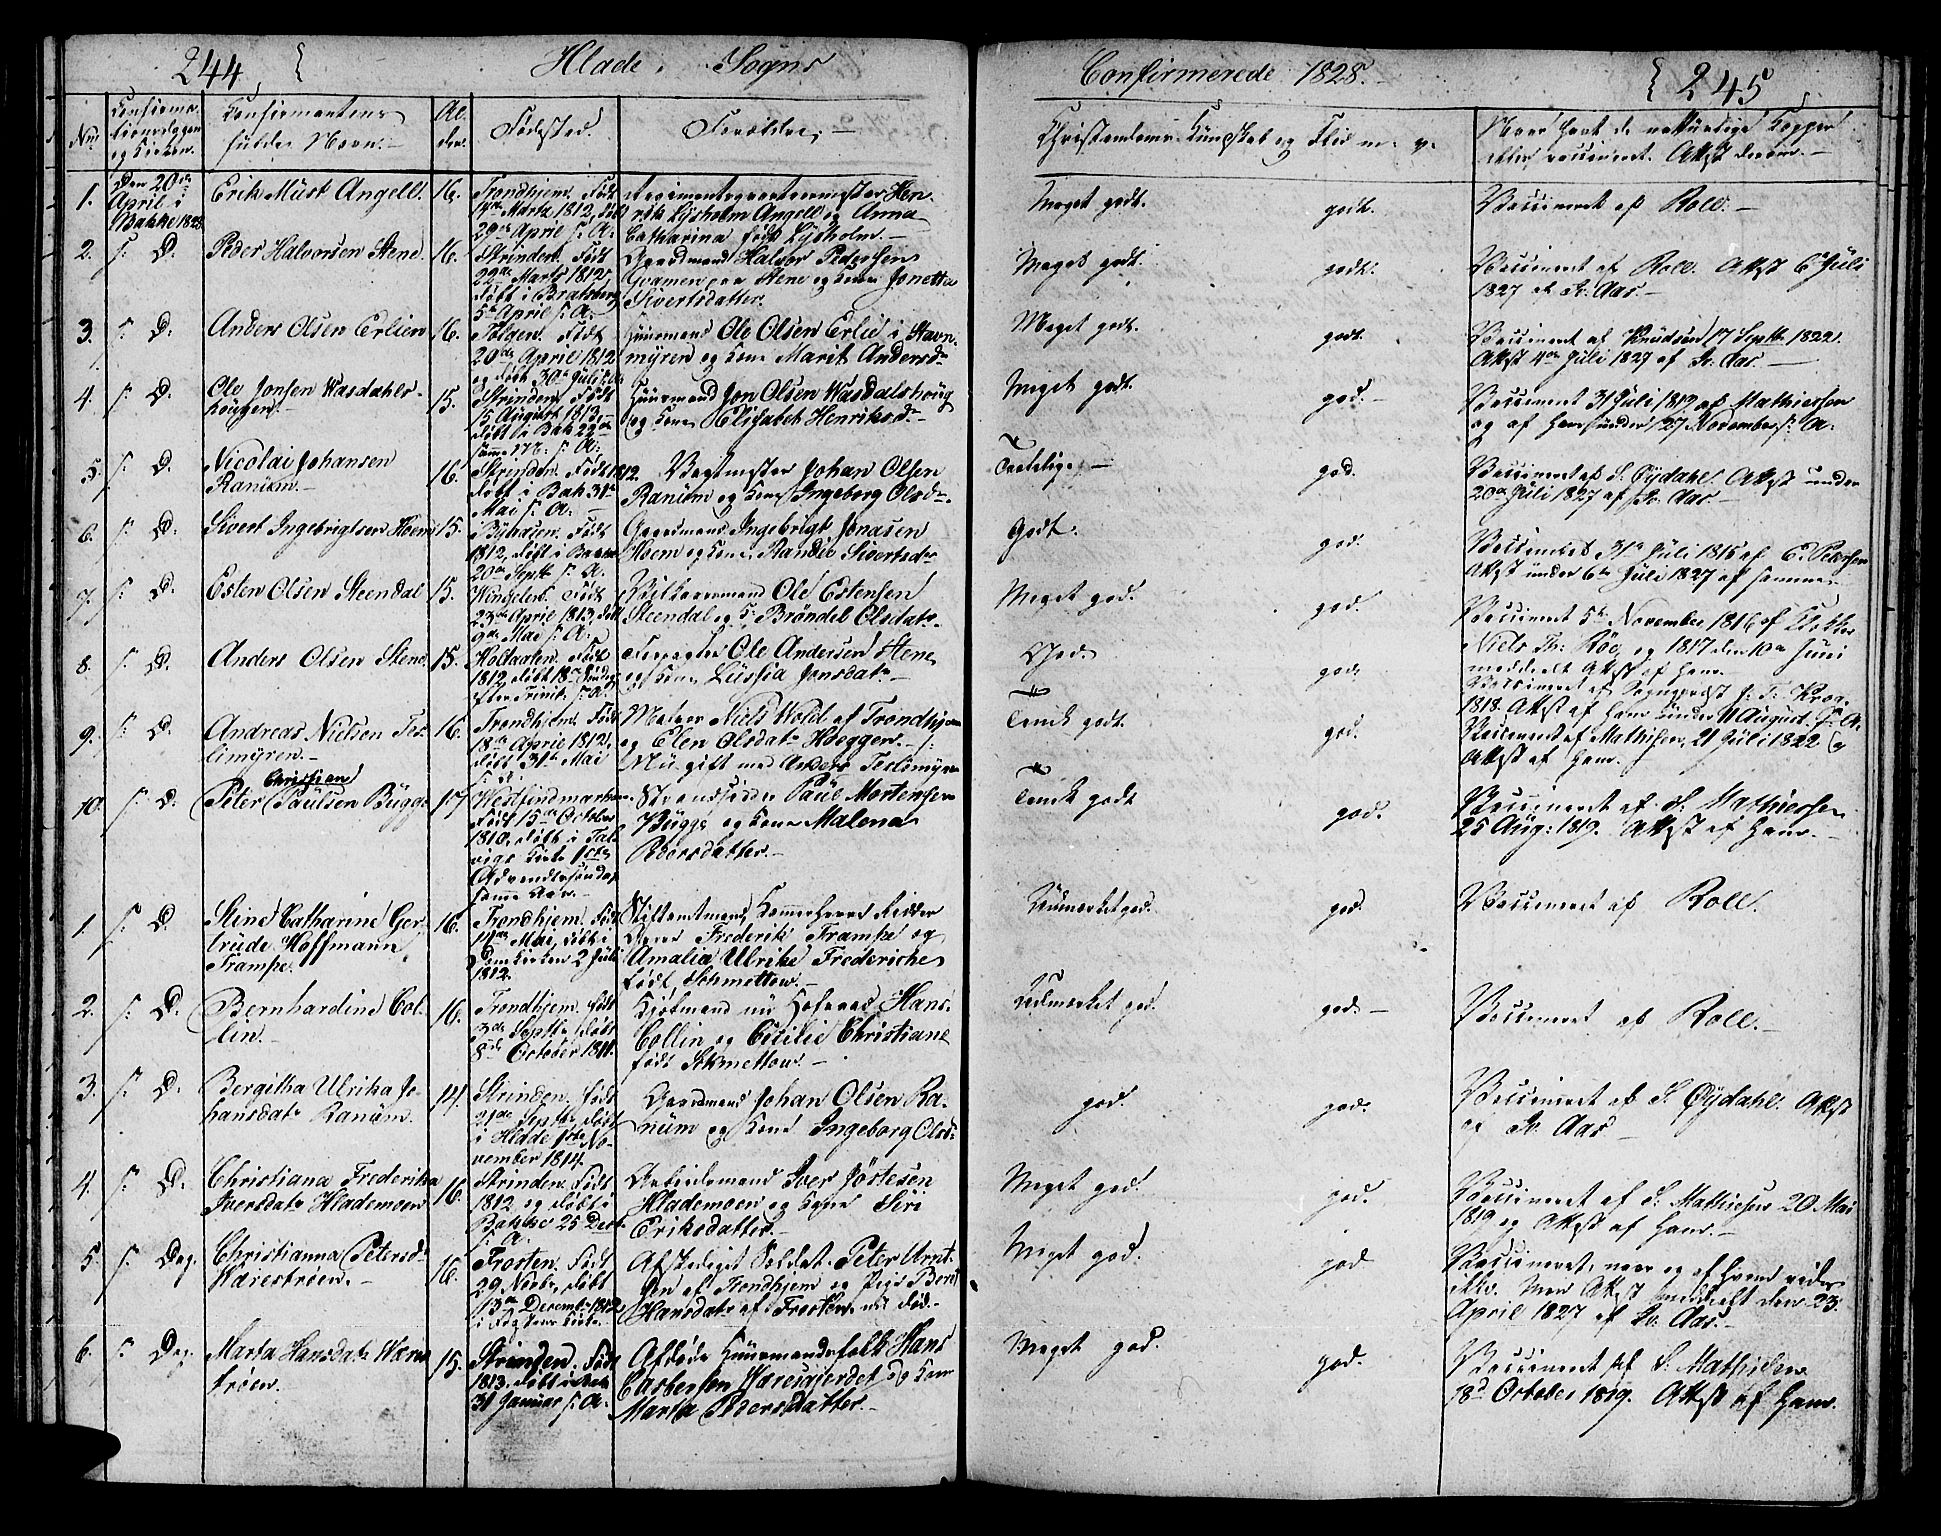 244
Hlade Sogns
Confirmerede 1828.
245
Nr.
Confirma-
tionsdagen
og Kirken.
Confirmantens
fulde Navn.
Al-
der.
Fødested.
Forældre.
Christendoms Kundskab og Flid m. v.
Naar havt de naturlige Kopper
eller vaccineret. Attest derom.
1.
Den 20de
April i
Bakke 1828
Erik Must Angell.
16.
Trondhjem. Født
14de Marts 1812, døbt
29de April s: A:
Regimentsqvarteermester Hen-
rik Lysholm Angell og Anna
Catharina født Lysholm.
Meget godt.
godt.
Vaccineret af Roll.
2.
s: D.
Peder Halvorsen Stene.
16.
Strinden. Født
22de Marts 1812,
døbt i Bratsberg
5te April s: A:
Gaardmand Halvor Pedersen
Qvamen paa Stene og Kone Jonetta
Sivertsdatter.
Meget godt.
godt.
Vaccineret af Roll. Attest 6te Juli
1827 af Sr. Aas.
3.
s: D.
Anders Olsen Erlien
16.
Tolgen. Født
20de April 1812
og døbt 30te Juli s: A:
Huusmand Ole Olsen Erlie i Stavn-
myren og Kone Marit Andersdr
Meget godt.
godt.
Vaccineret af Knudsen 17 Septb: 1822.
Attest 4de Juli 1827 af Sr. Aas.
4.
s: D.
Ole Jonsen Wasdahls-
houggen.
15.
Strinden. Født
15 August 1813,
døbt i Bak 22de
samme M. s: A:
Huusmand Jon Olsen Wasdalshoug
og Kone Elisabeth Henriksdr
Meget godt.
god.
Vaccineret 31 Juli 1819 af Mathiesen
og af ham under 27 November s: A:
5.
s: D.
Nicolai Johansen
Ranum.
16.
Strinden. Født 1812.
døbt i Bak 31te
Mai s: A:
Johan Olsen
Ranum og Kone Ingeborg Olsdr.
Temmelig
god.
Vaccineret af S. Øydahl. Attest under
20de Juli 1827 af Sr. Aas
6.
s: D.
Sivert Ingebrigtsen Hoem
15.
i Byhaven. Født
1812, døbt i
20de Septb s: A.
Gaardmand Ingebrigt Jonasen
Hoem og Kone Randie Sivertsdr
Godt.
god.
Vaccineret 31te Juli 1816 af C. Petersen
Attest under 6te Juli 1827 af samme
7.
s: D.
Esten Olsen Steendal
15.
Wingelen. Født
23de April 1813, døbt
9de Mai s: A:
Ole Estensen
Steendal og K: Brøndel Olsdatr.
Meget god.
god.
Vaccineret 5te November 1816 af Klokker
Niels Th: Röe, og 1817 den 10de Juni
meddeelt Attest af ham.
8.
s: D.
Anders Olsen Stene.
15.
Holtaalen. Født
1812, døbt 18de Søndag
efter Trinit: s: A:
Forpagter Ole Andersen Stene
og Kone Lussia Jonsdatr
God.
god.
Vaccineret af Sogneprest
1818. Attest af ham under 11 August s: A.
9.
s: D.
Andreas Nielsen Tes-
limyren.
16.
Trondhjem. Født
18de April 1812,
døbt 31te Mai
s: A:
Matros Niels Wold af Trondhjem
og Elen Olsdatr Hoeggen.
Nu gift med Anders Teslimyren
Temlig godt
god.
Vaccineret af Mathisen, 21 Juli 1822 og
Attest af ham.
10.
s: D.
Peter Christian Paulsen Bygge
17
Westfindmarken
Født 15de October
1810, døbt i Tal-
vigs Kirke 1ste
Adventssøndag
samme Aar.
Strandsidder Paul Mortensen
Bügge og Kone Malena
Pedersdatter.
Temlig godt
god.
Vaccineret af S: Mathiesen
25 Aug: 1819. Attest af ham.
1.
s: D.
Stine Catharine Ger-
trude Hoffmann
Trampe.
16.
Trondhjem. Født
14de Mai, døbt i
Domkirken 2 Juli
1812.
Stiftamtmand, Kammerherre Ridder
Greve Frederik Trampe og
Amalia Ulrike Frederiche
født Schmettow.
Udmærket god.
god.
Vaccineret af Roll.
2.
s: D.
Bernhardine Col-
lin.
16.
Trondhjem. Født
3de Septb: døbt
8de October 1811.
Kjøbmand nu Hofraad Hans
Collin og Cicilie Christiane
født Schmettow.
Udmærket god.
god.
Vaccineret af Roll.
3.
s: D.
Bergitha Ulrika Jo-
hansdatr Ranum.
14.
Strinden. Født
21de Septb: døbt
i Hlade 1ste No-
vember 1814.
Gaardmand Johan Olsen Ra-
num og Kone Ingeborg Olsdr
god.
god.
Vaccineret af S. Øydahl. Attest
af Sr. Aas
4.
s: D.
Christiana Frederika
Iversdatr Hlademoen
16.
Strinden. Født
1812 og døbt i
Bakke 25 Decbr
s: A.
Arbeidsmand Iver Jørtesen
Hlademoen og Kone Siri
Eriksdatter.
Meget god.
god.
Vaccineret af S. Mathiesen 20 Mai
1819 og Attest af ham.
5.
s: Dag.
Christianna Petersdr
Wærestrøen.
16.
Frosten. Født
29 Novbr, døbt
13de Decemb: 1812
i Logtens Kirke.
Afskediget Soldat Peter
af Trondhjem og Pige Berit
Hansdatr af Frosten nu død.
Meget god.
god
Vaccineret, naar og af hvem vides
ikke. Men Attest meddeelt den 23.
April 1827 af Sr. Aas
6.
s: Dag.
Marta Hansdatr Wære-
strøen.
15.
Strinden. Født
1813. døbt i Bak
31 Januar s: A.
Afdøde Huusmandsfolk Hans
Casbersen Wæresgjerdet og Kone
Marta Pedersdatter.
Meget god.
god.
Vaccineret af S. Mathisen
18d October 1819. Attest af ham.